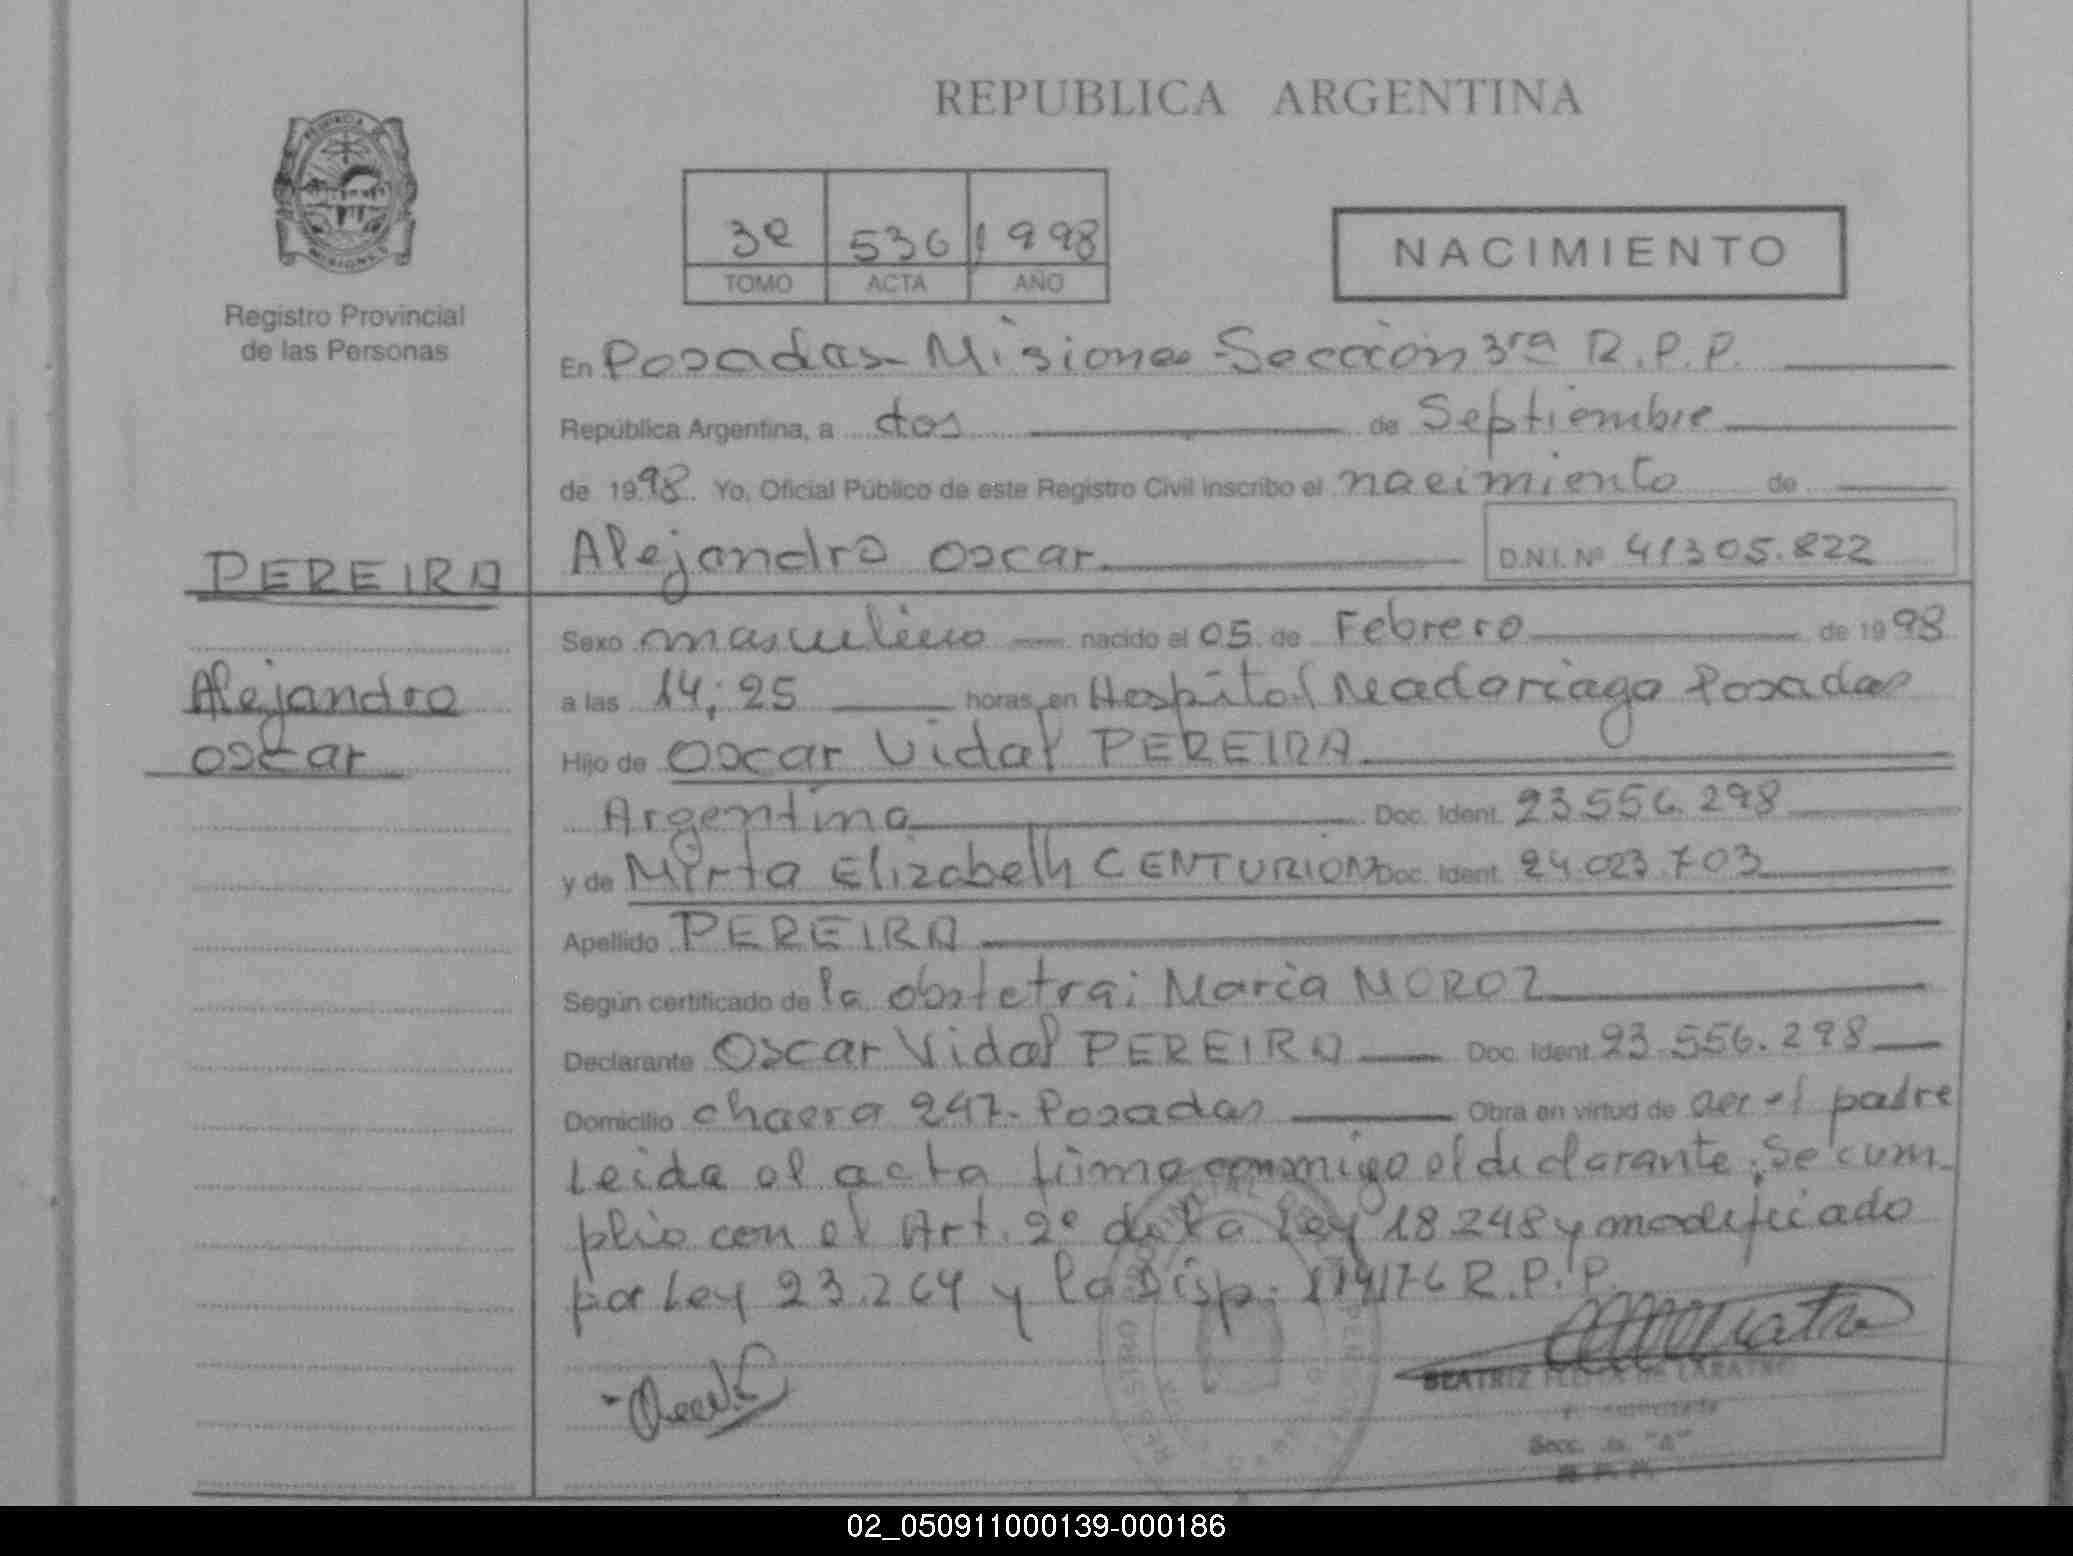 REPUBLICA ARGENTINA
PROVINCIA DE
MISIONES
Registro Provincial
de las Personas
3º 536 1998
TOMO ACTA AÑO
NACIMIENTO
En Posadas - Misiones - Sección 3ra R.P.P.
República Argentina, a dos de Septiembre
de 1998 Yo, Oficial Público de este Registro Civil inscribo el nacimiento de
Alejandro Oscar D.N.I. Nº 41305.822
PEREIRA
Alejandro
Oscar
Sexo masculino nacido el 05 de Febrero de 1998
a las 14:25 horas, en Hospital Madariaga Posadas
Hijo de Oscar Vidal PEREIRA
Argentina Doc. Ident. 23.556.298
y de Mirta Elizabeth CENTURION Doc. Ident. 24.023.703
Apellido PEREIRA
Según certificado de la obstetra: Maria MOROZ
Declarante Oscar Vidal PEREIRA Doc. Ident. 23.556.298
Domicilio chacra 247 - Posadas Obra en virtud de ser el padre
Leida el acta firma conmigo el declarante. Se cum-
plio con el Art. 2º de la Ley 18.248 y modificado
por Ley 23.264 y la Disp. R.P.P.
BEATRIZ
Secc. "A"
02_050911000139-000186